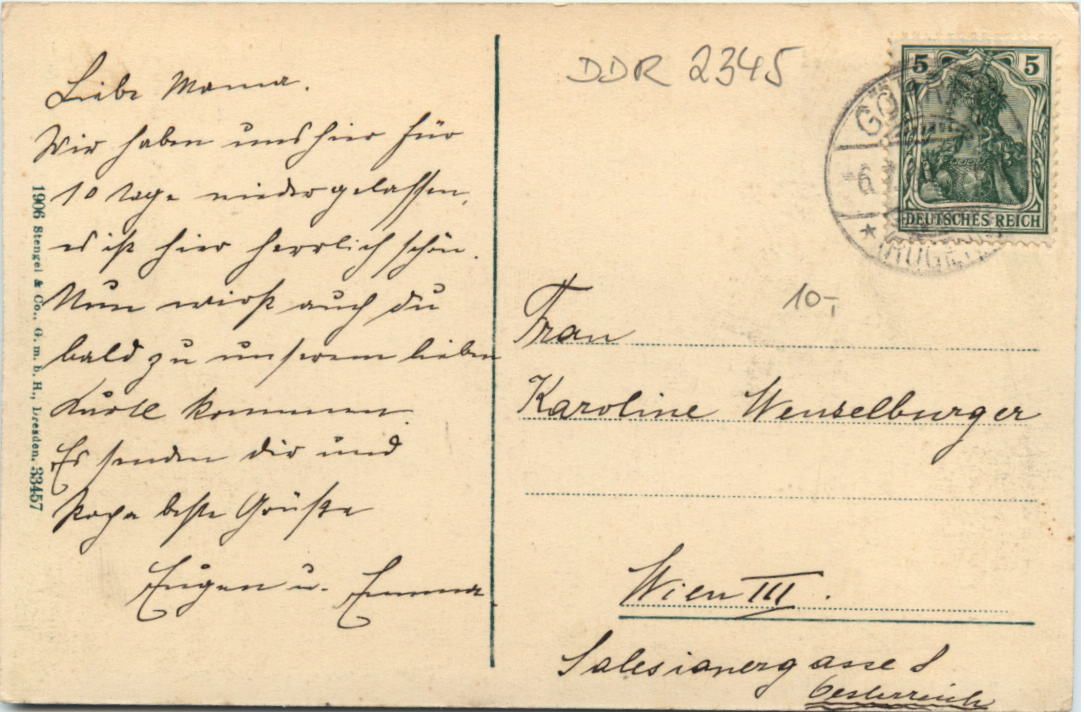 Liebe Mama.
Wir haben uns hier für
10 Tage niedergelassen,
es ist hier herrlich schön.
Nun wirst auch du
bald zu unserem lieben
kommen.
Es senden dir und
Papa beste Grüße
Eugen u. Emma.
1906 Stengel & Co., G. m. b. H., Dresden. 33457
DDR 2345
5 5
DEUTSCHES REICH
10,-
Frau
Karoline Wenselburger
Wien III.
Salesianergasse 8
Oesterreich